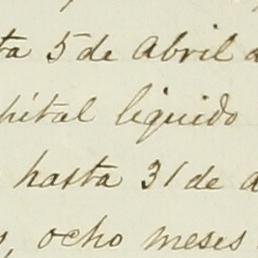 ta 5 de Abril
pital liquido
hasta 31 de a
s, ocho meses